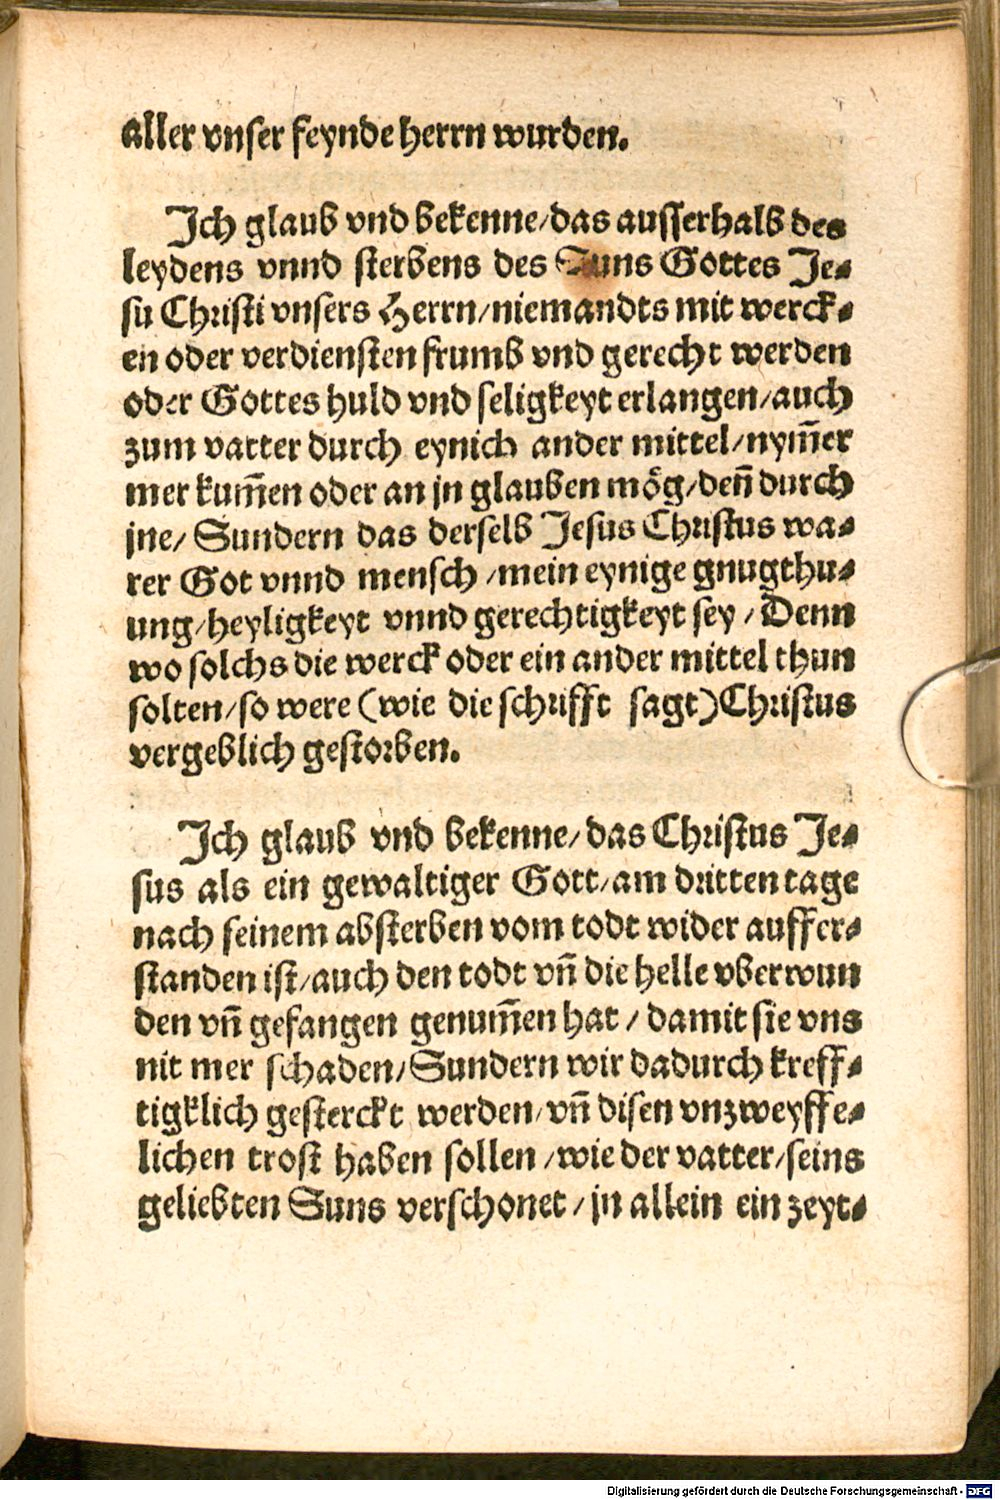 aller vnser feynde herrn wurden.
Ich glaub vnd bekenne/das ausserhalb des
leydens vnnd sterbens des Suns Gottes Je⸗
su Christi vnsers Herrn/niemandts mit werck⸗
en oder verdiensten frumb vnd gerecht werden
oder Gottes huld vnd seligkeyt erlangen/auch
zum vatter durch eynich ander mittel/nym̃er
mer kum̃en oder an jn glauben mög/deñ durch
jne/ Sundern das derselb Jesus Christus wa⸗
rer Got vnnd mensch /mein eynige gnugthu⸗
ung/heyligkeyt vnnd gerechtigkeyt sey / Denn
wo solchs die werck oder ein ander mittel thun
solten/so were (wie die schrifft sagt) Christus
vergeblich gestorben.
Ich glaub vnd bekenne/das Christus Je⸗
sus als ein gewaltiger Gott/am dritten tage
nach seinem absterben vom todt wider auffer⸗
standen ist/auch den todt vñ die helle vberwun
den vñ gefangen genum̃en hat / damit sie vns
nit mer schaden/Sundern wir dadurch kreff⸗
tigklich gesterckt werden/vñ disen vnzweyffe⸗
lichen trost haben sollen /wie der vatter/seins
geliebten Suns verschonet / jn allein ein zeyt⸗
Digitalisierung gefördert durch die Deutsche Forschungsgemeinschaft - DFG